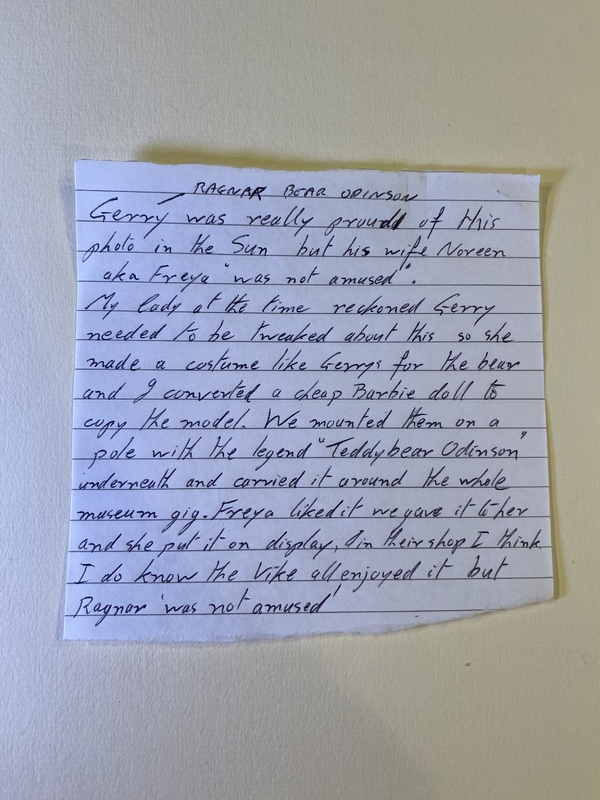 RAGNAR BEAR ODINSON
Gerry was really proud of this
photo in the Sun but his wife Noreen
aka Freya "was not amused".
My lady at the time reckoned Gerry
needed to be tweaked about this so she
made a costume like Gerrys for the bear
and I converted a cheap Barbie doll to
copy the model. We mounted them on a
pole with the legend "Teddybear Odinson"
underneath and carried it around the whole
museum gig. Freya liked it we gave it to her
and she put it on display, in their shop I think
I do know the Vike all enjoyed it but
Ragnar 'was not amused'